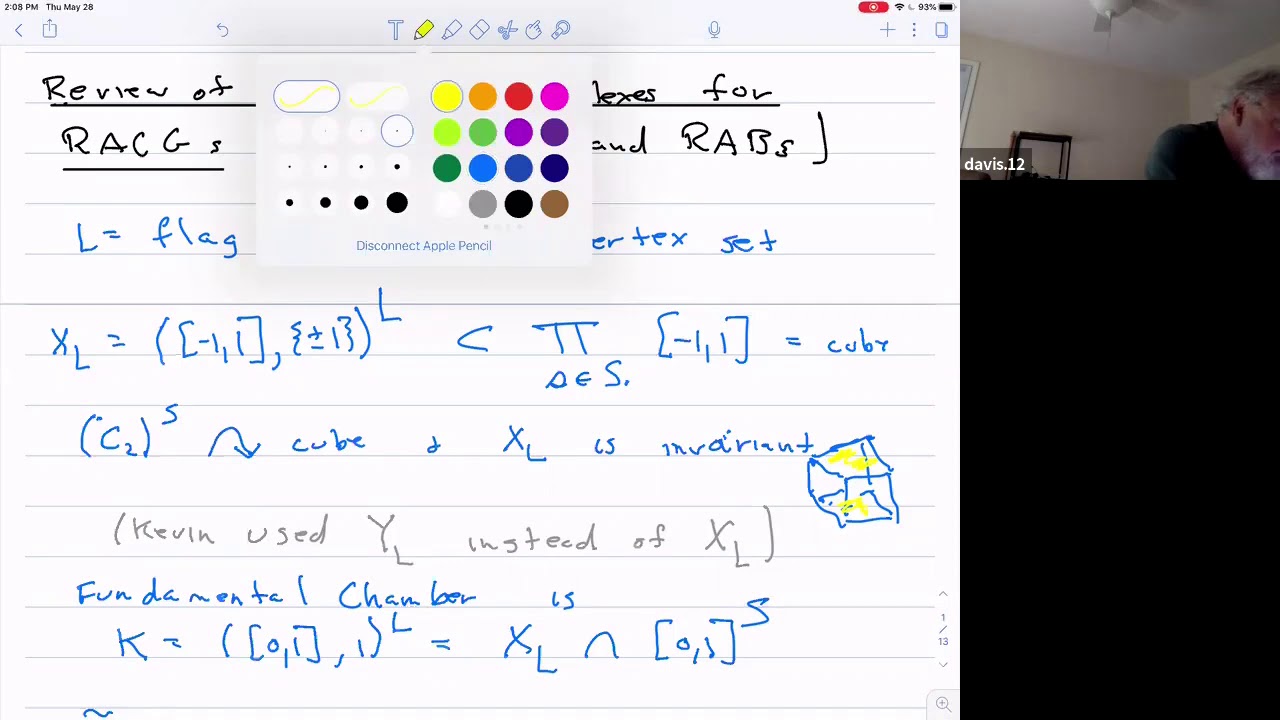 2:08 PM Thu May 28
93%
Review of lexes for
RACGs and RABs ]
Disconnect Apple Pencil
L = flag ertex set
X_L = ([-1,1], {±1})^L ⊂ ∏ [-1,1] = cube
s ∈ S.
(C_2)^S ↷ cube + X_L is invariant
(Kevin used Y_L instead of X_L)
Fundamental Chamber is
K = ([0,1], 1)^L = X_L ∩ [0,1]^S
~
1
/
13
davis.12